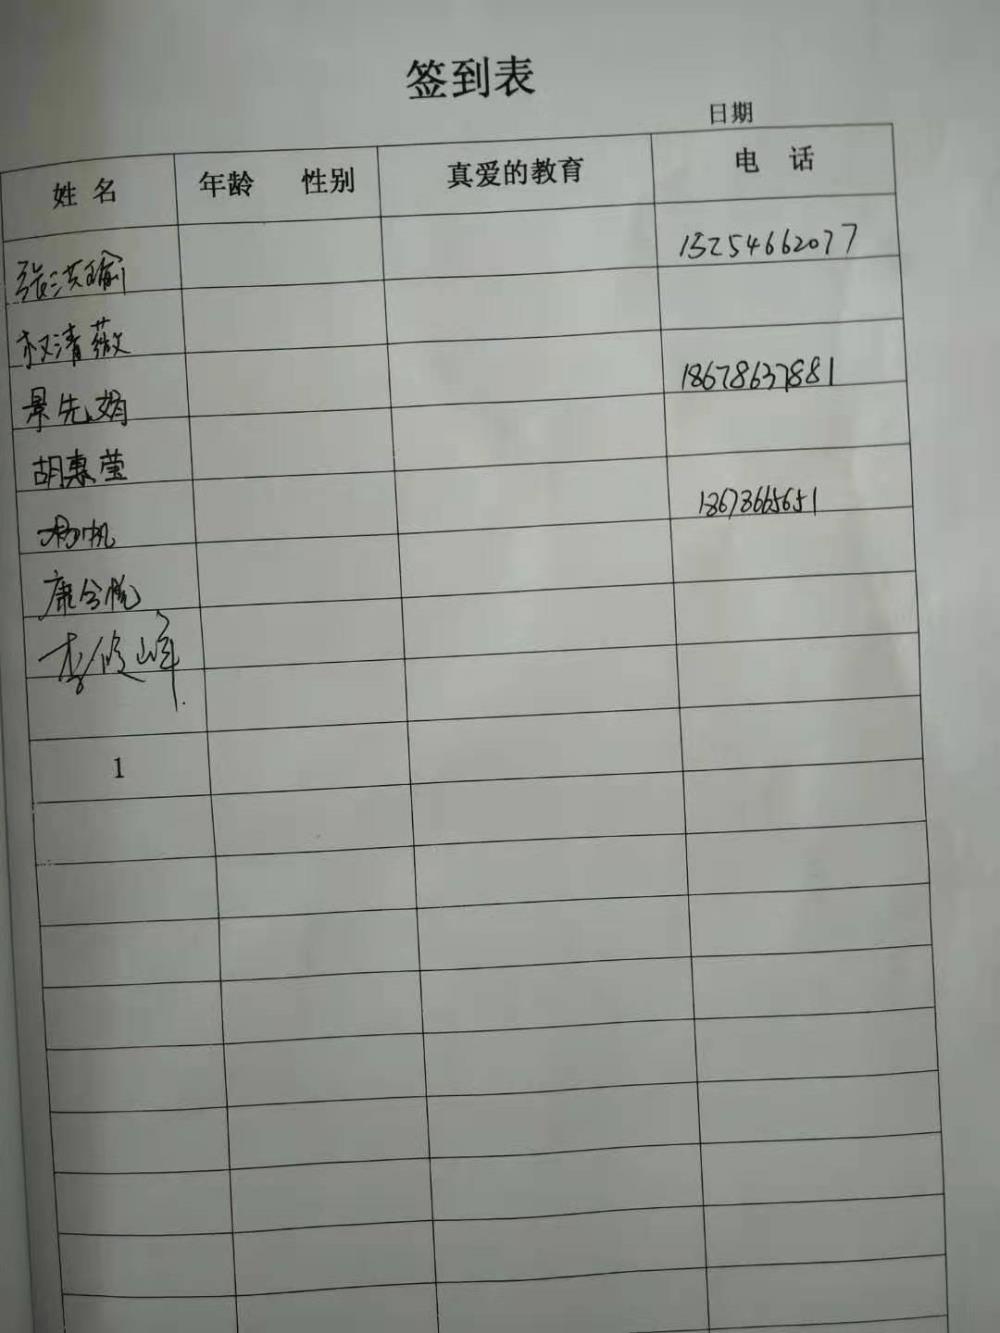 签到表
日期
姓 名 年龄 性别 真爱的教育 电 话
张洪瑜 15254662077
权清薇
景先娟 18678637881
胡惠莹
杨帆 18678665651
康
李俊峰
1